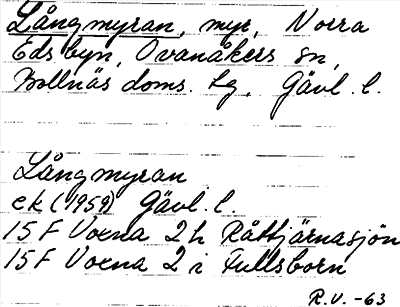 Långmyran, myr, Norra
Edsbyn, Ovanåkers sn,
Bollnäs doms. hg, Gävl. l.
Långmyran
ek (1959) Gävl. l.
15 F Voxna 2 h Råttjärnasjön
15 F Voxna 2 i Fullsborn
R.V. -63